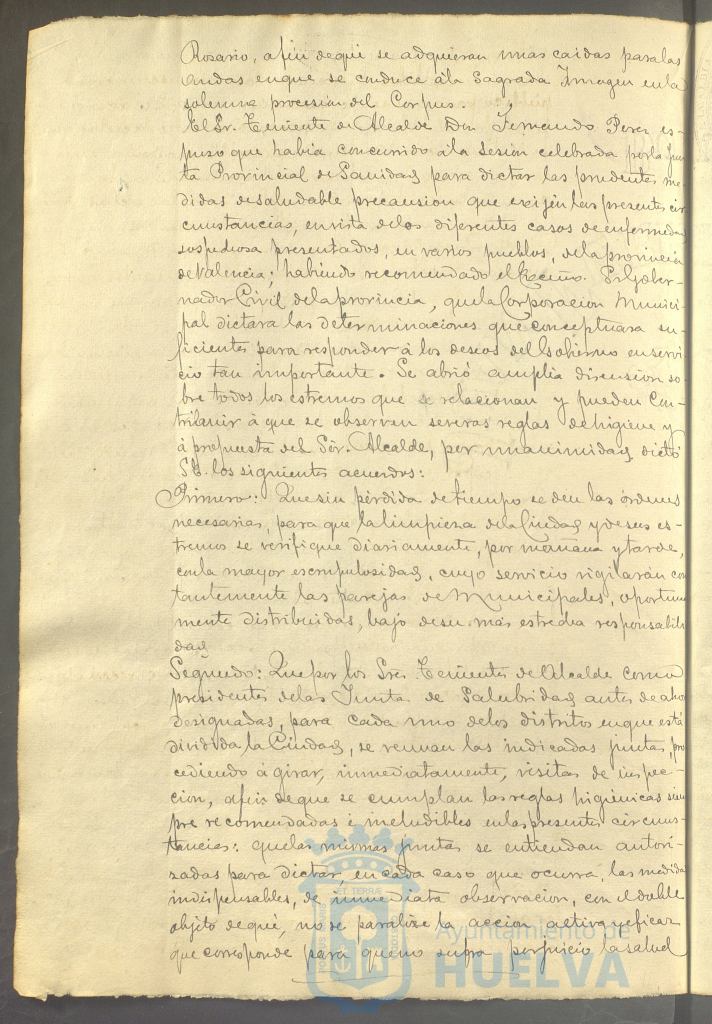 Rosario, afin deque se adquieran unas caidas paralas
andas enque se conduce ála Sagrada Imagen enla
solemne procesion del Corpus.
El Sr. Teniente de Alcalde Don Fernando Perez es-
puso que habia concurrido ála sesion celebrada porla Jun
ta Provincial de Sanidad, para dictar las prudentes me
didas desaludable precaucion que exijen las presentes cir
cunstancias, envista delos diferentes casos de enfermedad
sospechosa presentados, en varios pueblos, dela provincia
deValencia; habiendo recomendado el Excmo. Sr Gober-
nador Civil dela provincia, quela Corporacion Munici-
pal dictara las determinaciones que conceptuara su-
ficientes para responder á los deseos del Gobierno enservi
cio tan importante. Se abrió amplia discusion so-
bre todos los estremos que se relacionan y pueden con-
tribuir á que se observen severas reglas dehigiene y
á propuesta del Sór. Alcalde, por unanimidad, dictó
SE. los siguientes acuerdos:
Primero: Quesin pérdida detiempo se den las órdenes
necesarias, para que lalimpieza dela Ciudad y desus es-
tremos se verifique diariamente, por mañana y tarde,
conla mayor escrupulosidad, cuyo servicio vigilarán cons
tantemente las parejas de Municipales, oportuna
mente distribuidas, bajo desu mas estrecha responsabili
dad
Segundo: Quepor los Sres. Tenientes de Alcalde como
presidentes delas Junta de Salubridad, antes de aho
designadas, para cada uno delos distritos enque está
dividida la Ciudad, se reunan las indicadas juntas, pro
cediendo á girar, inmediatamente, visitas de inspec-
cion, afin deque se cumplan lasreglas higiénicas siem
pre recomendadas é ineludibles enlas presentes circuns-
tancias: quelas mismas juntas se entiendan autori-
zadas para dictar, en cada caso que ocurra, las medidas
indispensables, de inmediata observacion, con eldoble
objeto deque, no se paralize la accion activa y eficaz
que corresponde para queno sufra perjuicio lasalud
ET TERRÆ
Ayuntamiento de
HUELVA